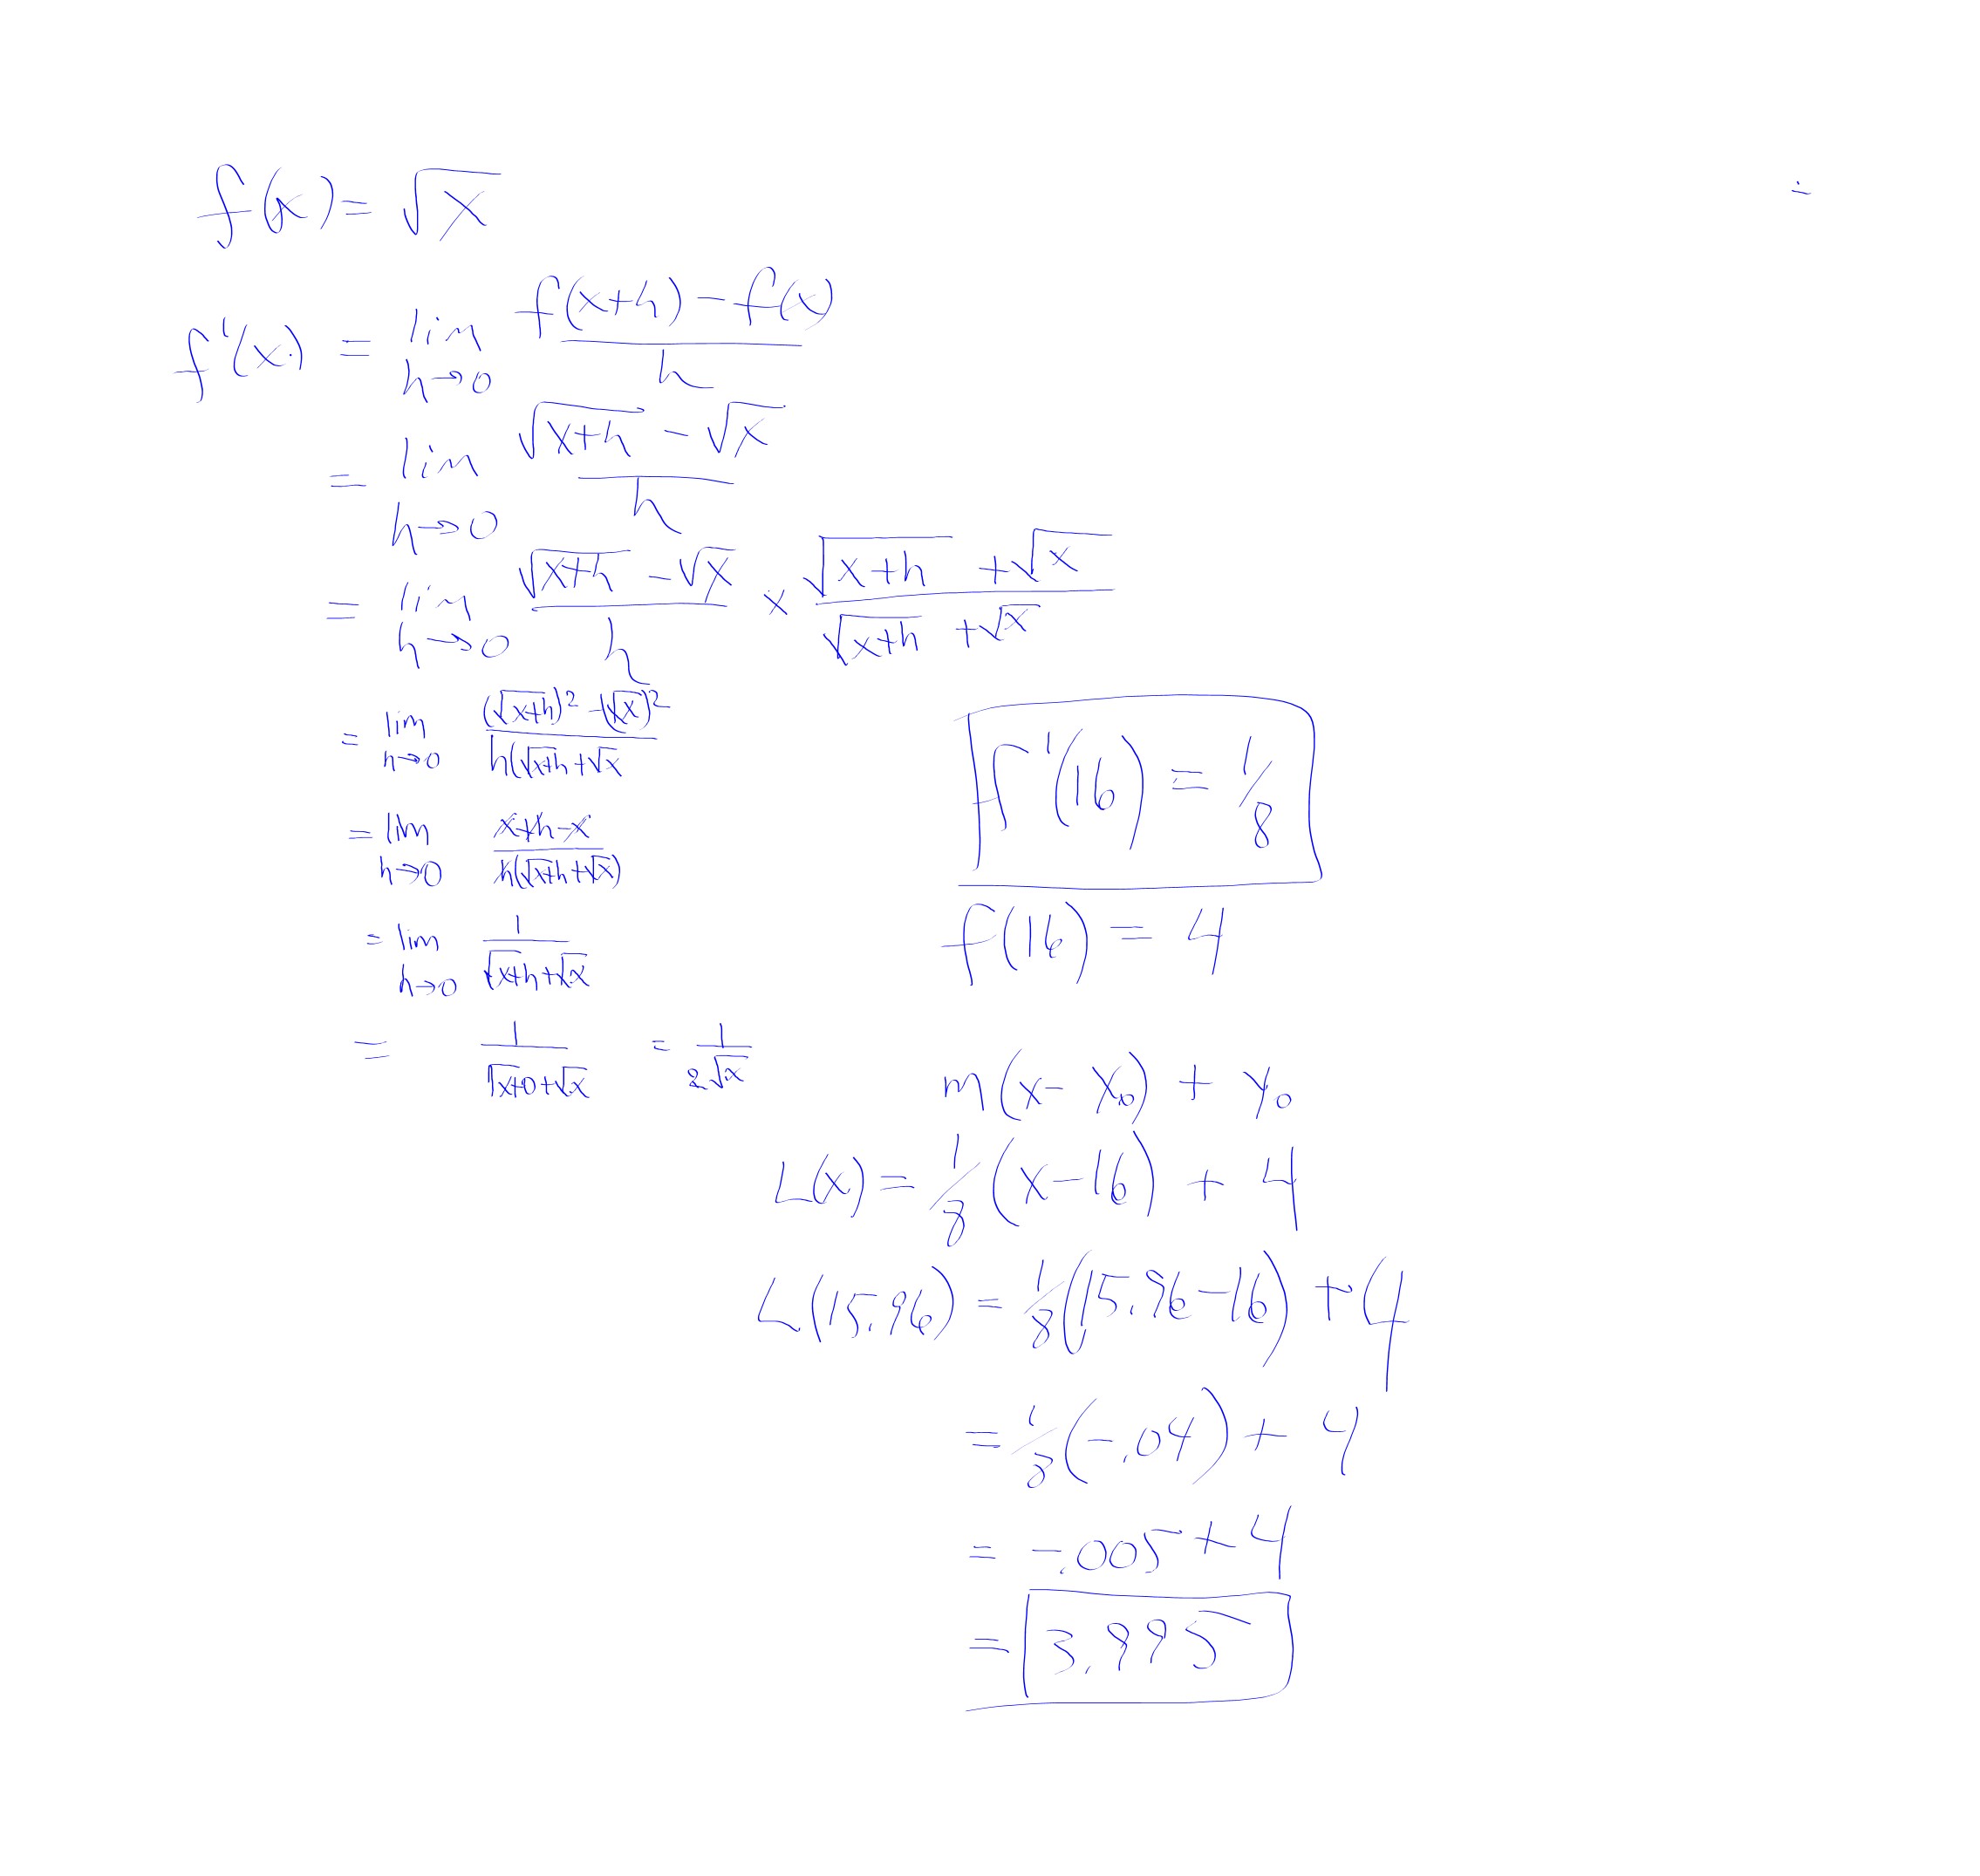 f(x) = √x
f'(x) = lim h→0 (f(x+h) - f(x))/h
= lim h→0 (√(x+h) - √x)/h
= lim h→0 (√(x+h) - √x)/h × (√(x+h) + √x)/(√(x+h) + √x)
= lim h→0 ((√(x+h))² - (√x)²)/(h(√(x+h) + √x
= lim h→0 (x+h-x)/(h(√(x+h) + √x))
= lim h→0 1/(√(x+h) + √x)
= 1/(√(x+0) + √x) = 1/(2√x)
f'(16) = 1/8
f(16) = 4
m(x - x₀) + y₀
L(x) = 1/8 (x - 16) + 4
L(15.96) = 1/8 (15.96 - 16) + 4
= 1/8 (-.04) + 4
= -.005 + 4
= 3.995